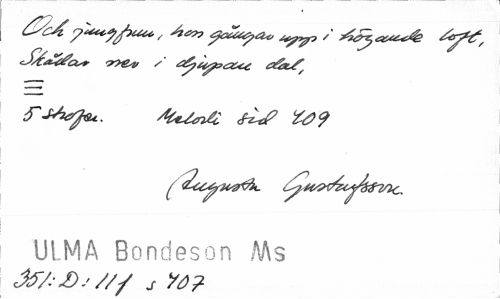 Och jungfrun, hon gångar upp i högande loft,
Skådar ner i djupan dal,
5 strofer. Melodi sid 409
Augusta Gustafsson.
ULMA Bondeson Ms
351: D: 11 f s 407